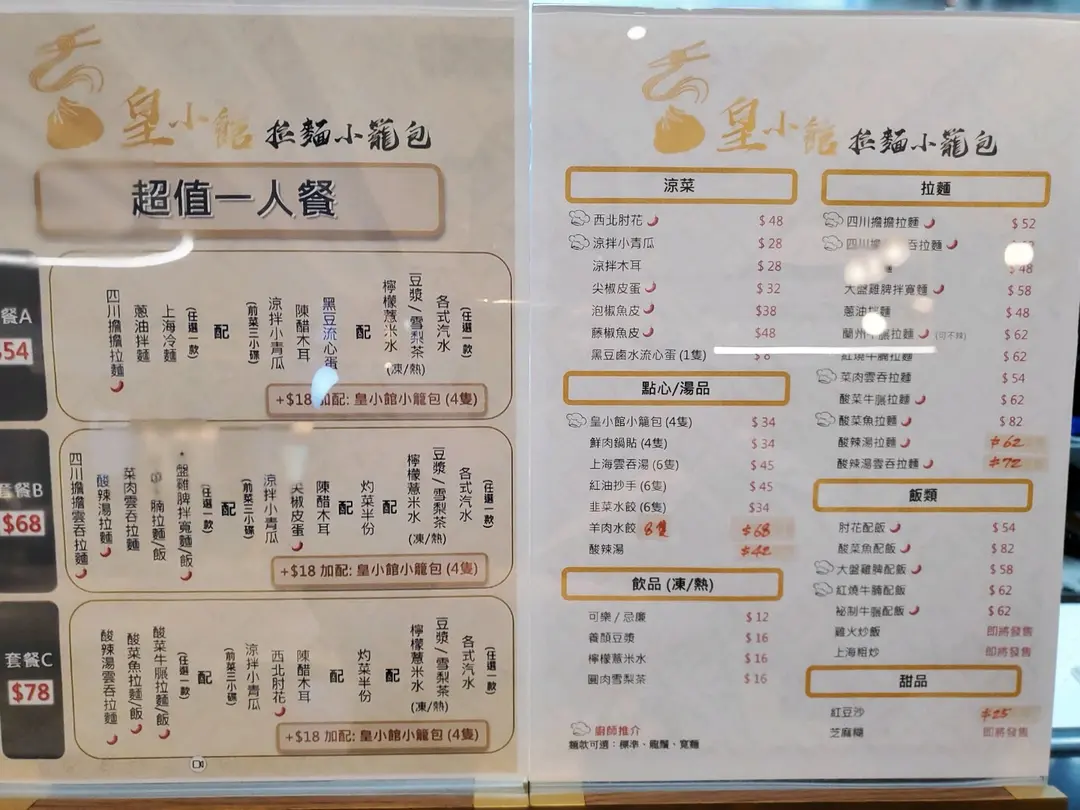 皇小館 拉麵小籠包
超值一人餐
餐A
$54
四川擔擔拉麵
蔥油拌麵
上海冷麵
(任選一款)
配
(前菜三小碟)
涼拌小青瓜
陳醋木耳
黑豆流心蛋
配
檸檬薏米水
豆漿/雪梨茶
(凍/熱)
各式汽水
(任選一款)
+$18 加配: 皇小館小籠包 (4隻)
套餐B
$68
四川擔擔雲吞拉麵
酸辣湯拉麵
菜肉雲吞拉麵
腩拉麵/飯
盤雞脾拌寬麵/飯
(任選一款)
配
(前菜三小碟)
涼拌小青瓜
尖椒皮蛋
陳醋木耳
配
灼菜半份
配
檸檬薏米水
豆漿/雪梨茶
(凍/熱)
各式汽水
(任選一款)
+$18 加配: 皇小館小籠包 (4隻)
套餐C
$78
酸辣湯雲吞拉麵
酸菜魚拉麵/飯
酸菜牛𦟌拉麵/飯
(任選一款)
配
(前菜三小碟)
涼拌小青瓜
西北肘花
陳醋木耳
配
灼菜半份
配
檸檬薏米水
豆漿/雪梨茶
(凍/熱)
各式汽水
(任選一款)
+$18 加配: 皇小館小籠包 (4隻)
皇小館 拉麵小籠包
涼菜
西北肘花 $48
涼拌小青瓜 $28
涼拌木耳 $28
尖椒皮蛋 $32
泡椒魚皮 $38
藤椒魚皮 $48
黑豆鹵水流心蛋 (1隻) $8
點心/湯品
皇小館小籠包 (4隻) $34
鮮肉鍋貼 (4隻) $34
上海雲吞湯 (6隻) $45
紅油抄手 (6隻) $45
韭菜水餃 (6隻) $34
羊肉水餃 8隻 $68
酸辣湯 $42
飲品 (凍/熱)
可樂 / 忌廉 $12
養顏豆漿 $16
檸檬薏米水 $16
圓肉雪梨茶 $16
廚師推介
麵款可選：標準、龍鬚、寬麵
拉麵
四川擔擔拉麵 $52
四川擔 吞拉麵
麵 $48
大盤雞脾拌寬麵 $58
蔥油拌麵 $48
蘭州牛𦟌拉麵 (可不辣) $62
紅燒牛腩拉麵 $62
菜肉雲吞拉麵 $54
酸菜牛𦟌拉麵 $62
酸菜魚拉麵 $82
酸辣湯拉麵 $62
酸辣湯雲吞拉麵 $72
飯類
肘花配飯 $54
酸菜魚配飯 $82
大盤雞脾配飯 $58
紅燒牛腩配飯 $62
祕制牛𦟌配飯 $62
雞火炒飯 即將發售
上海粗炒 即將發售
甜品
紅豆沙 $25
芝麻糊 即將發售